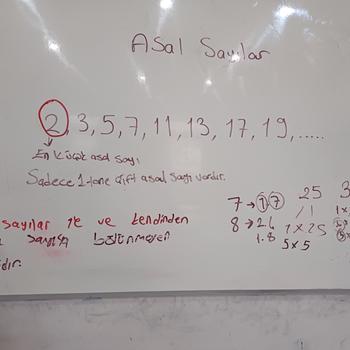 Asal Sayılar
2, 3, 5, 7, 11, 13, 17, 19, .....
En küçük asal sayı
Sadece 1 tane çift asal sayı vardır.
sayılar 1'e ve kendinden
sayıya bölünmeyen
dır.
7 → 1 7
8 →
1.8
25
1 x 25
5 x 5
3